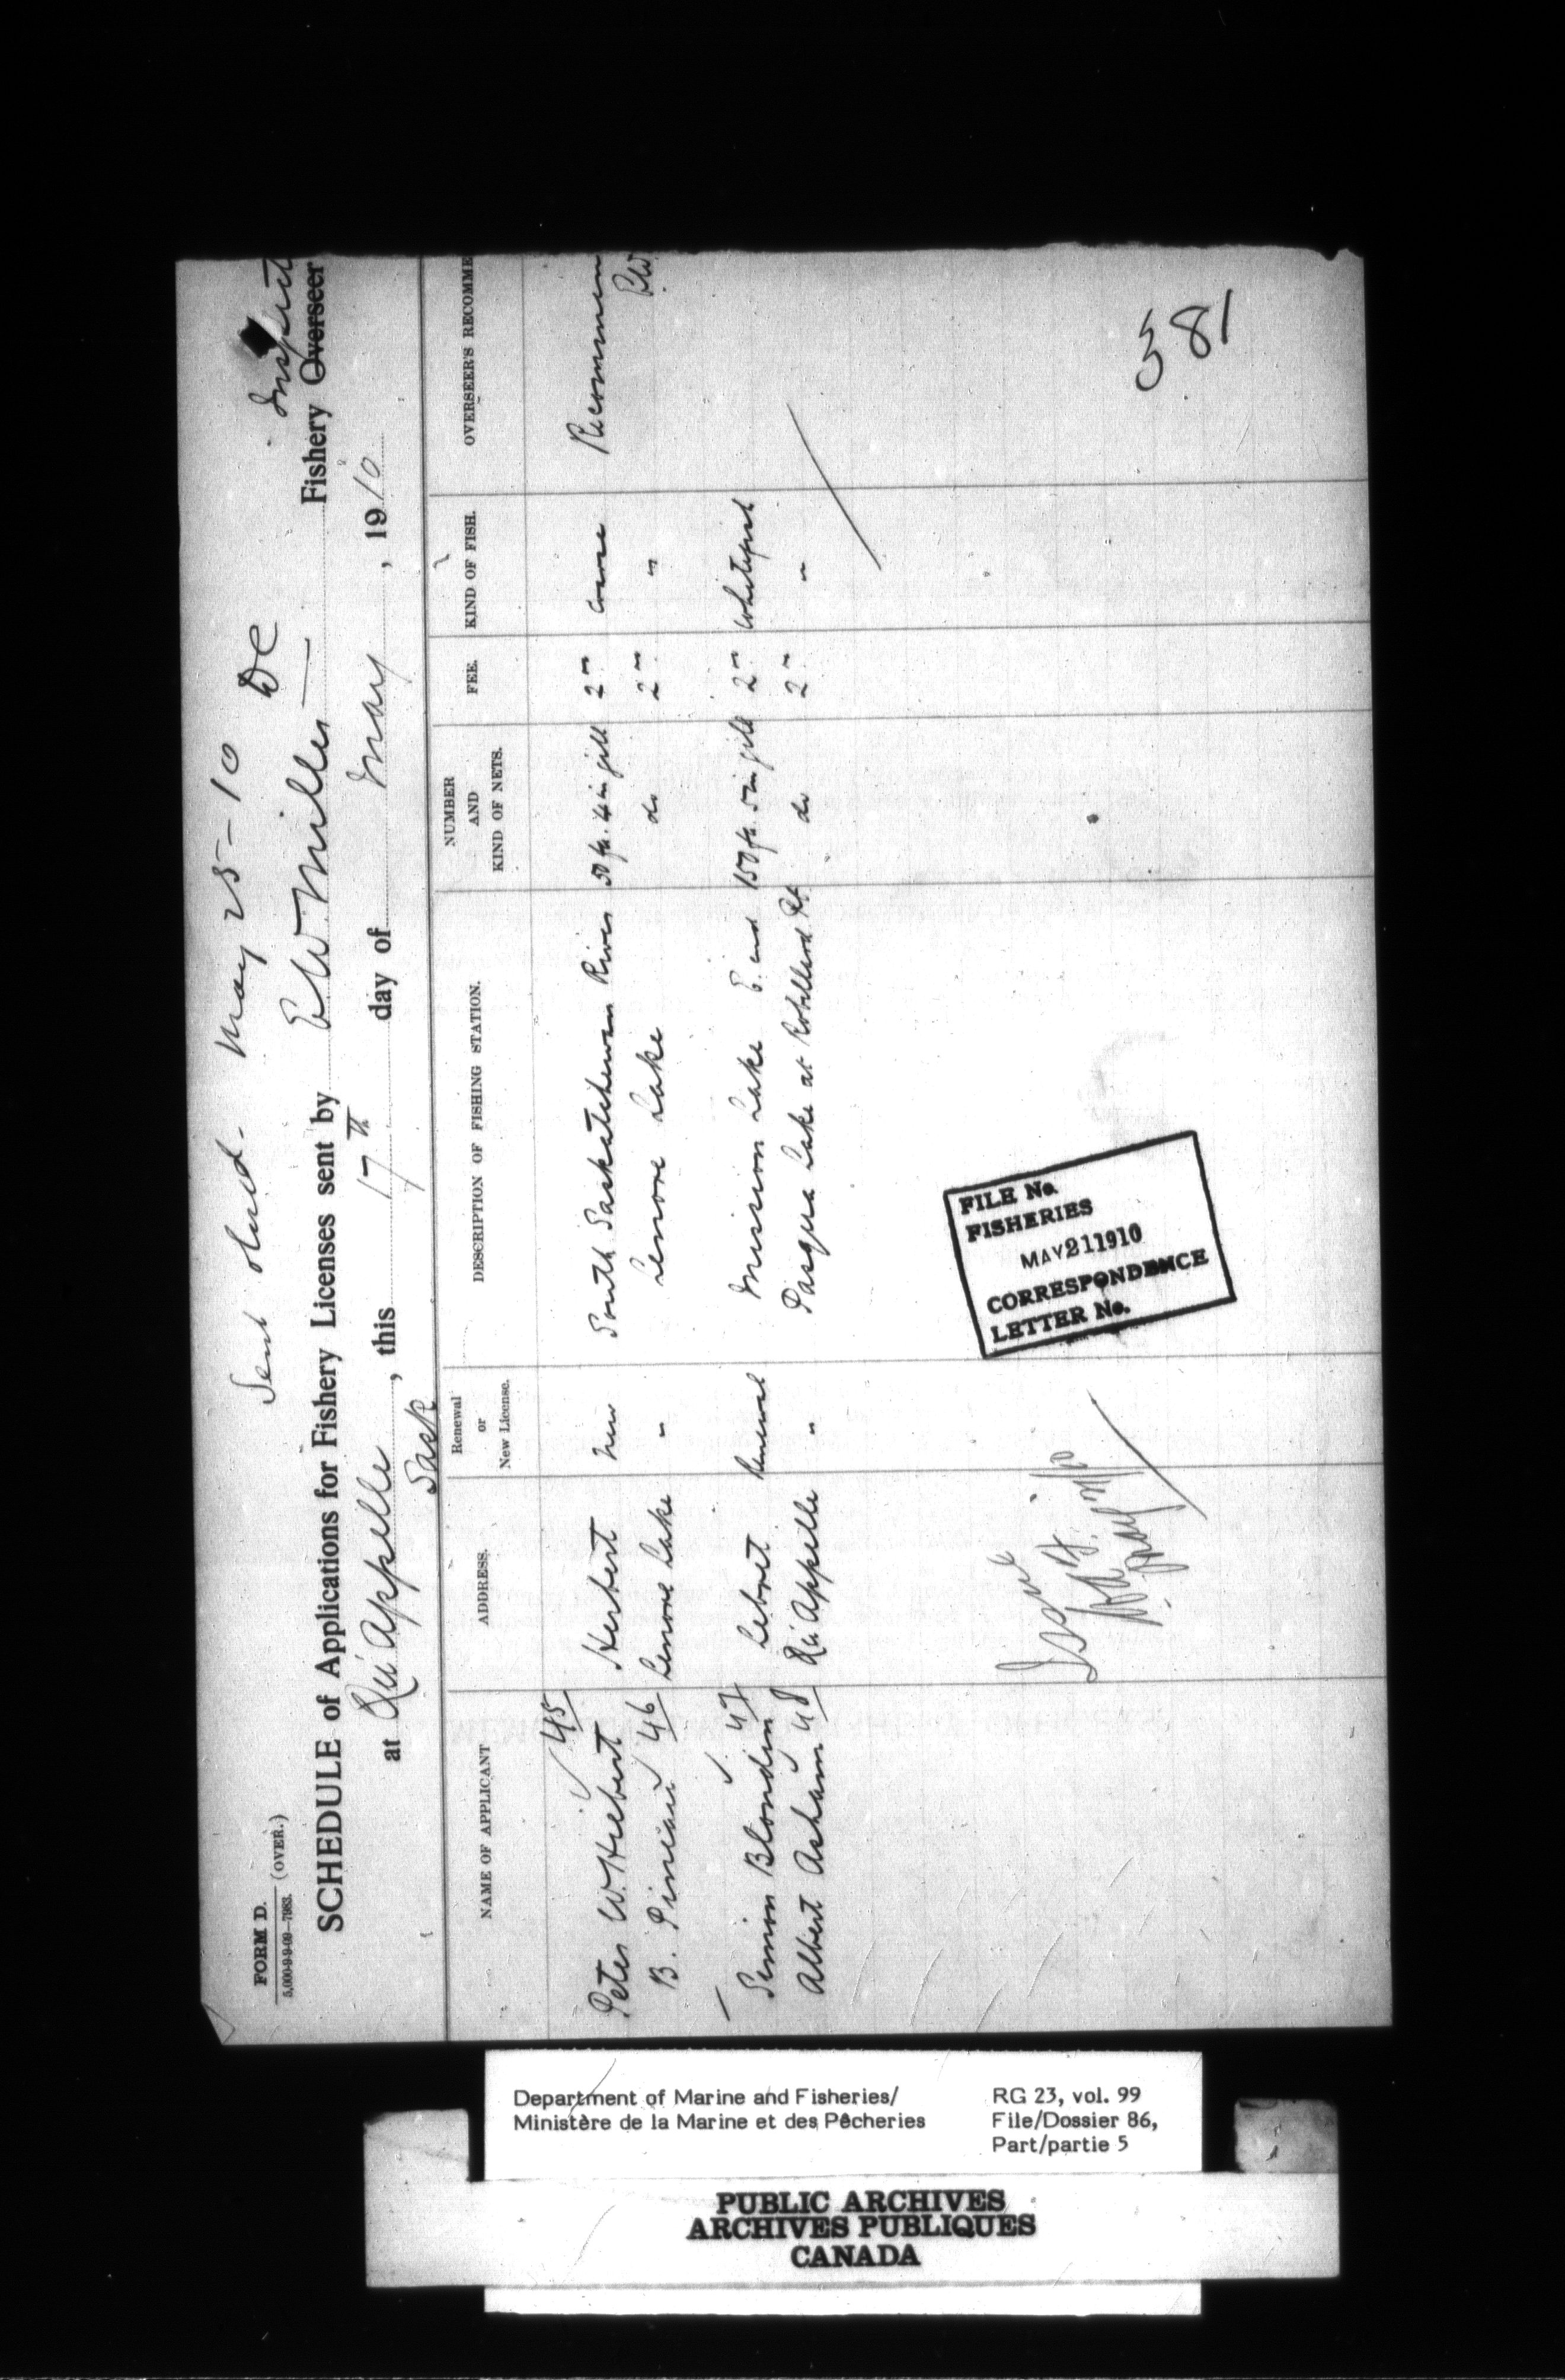 FORM D.
5,000-9-9-09—7983. (OVER.)
May 25-10 DC
SCHEDULE of Applications for Fishery Licenses sent by E W Miller Fishery Overseer
at Qu'Appelle, this 17th day of May, 1910
Sask
NAME OF APPLICANT ADDRESS. Renewal or New License. DESCRIPTION OF FISHING STATION. NUMBER AND KIND OF NETS. FEE. KIND OF FISH. OVERSEER'S RECOMME
45
Peter W. Hiebert Herbert New South Saskatchewan River 50 fa. 4 in gill 2 " coarse Recommen
B. 46 Lenore Lake " Lenore Lake do 2 " " EW
Simon Blondin 47 Lebret Renewal Mission Lake E. end 150 fa. 5 in gill 2 " Whitefish
Albert Asham 48 Qu'Appelle " Pasqua Lake at Robillard Pt. do 2 " "
FILE No.
FISHERIES
MAY 21 1910
CORRESPONDENCE
LETTER No.
581
Department of Marine and Fisheries/
Ministère de la Marine et des Pêcheries
RG 23, vol. 99
File/Dossier 86,
Part/partie 5
PUBLIC ARCHIVES
ARCHIVES PUBLIQUES
CANADA